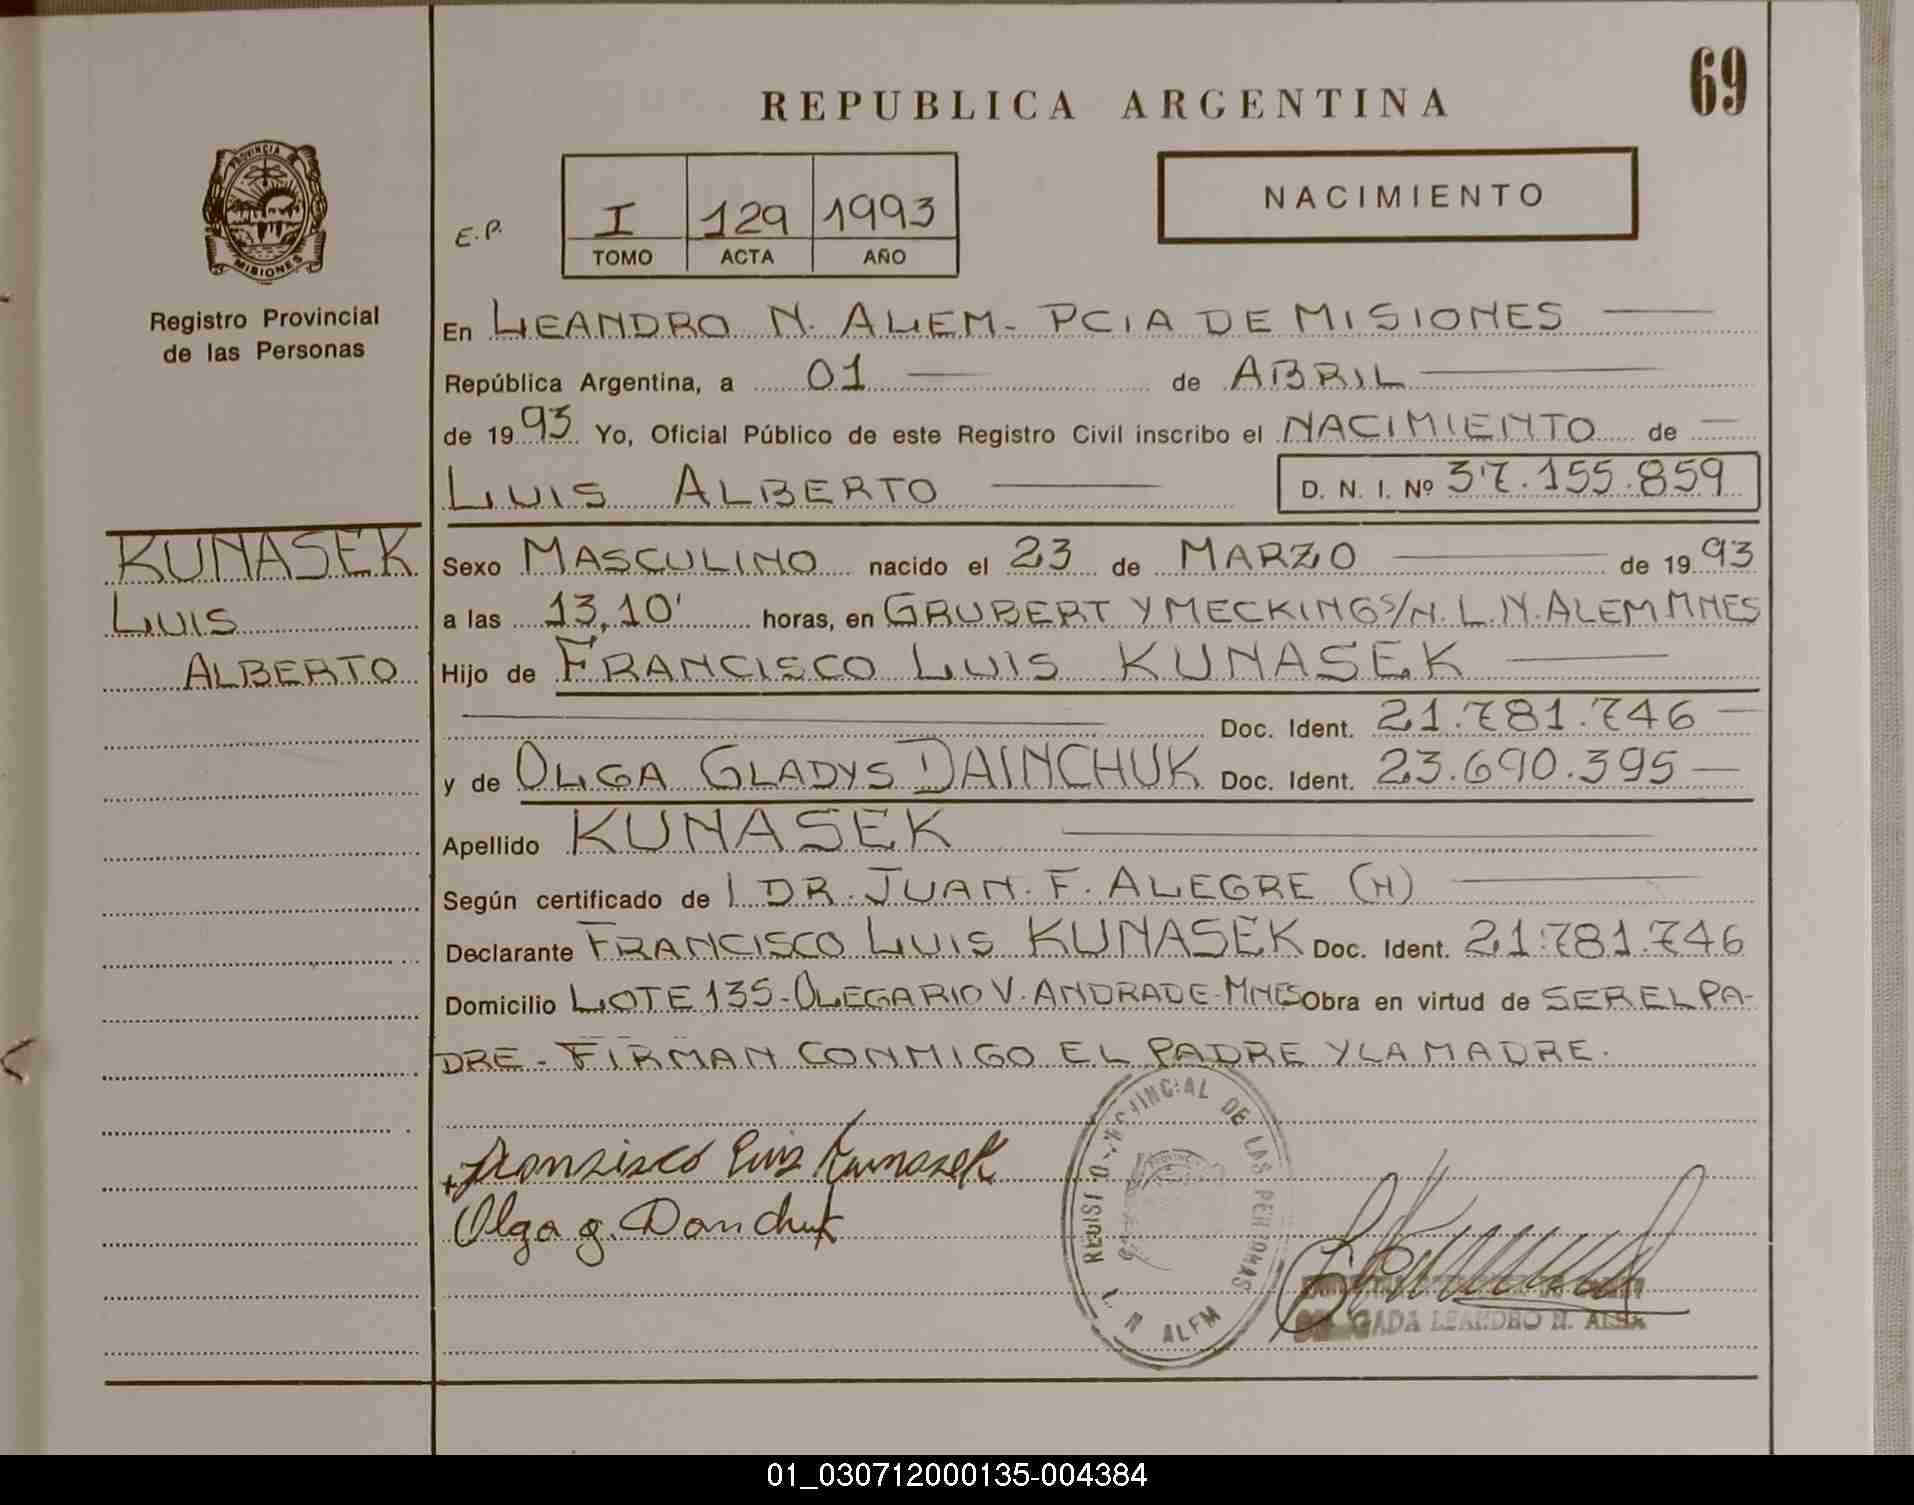 69
REPUBLICA ARGENTINA
PROVINCIA DE
MISIONES
Registro Provincial
de las Personas
E.P.
I 129 1993
TOMO ACTA AÑO
NACIMIENTO
En LEANDRO N. ALEM - PCIA DE MISIONES
República Argentina, a 01 de ABRIL
de 1993 Yo, Oficial Público de este Registro Civil inscribo el NACIMIENTO de
LUIS ALBERTO D. N. I. Nº 37.155.859
KUNASEK
LUIS
ALBERTO
Sexo MASCULINO nacido el 23 de MARZO de 1993
a las 13,10' horas, en GRUBERT Y MECKING S/N. L.N. ALEM MNES
Hijo de FRANCISCO LUIS KUNASEK
Doc. Ident. 21.781.746
y de OLGA GLADYS DAINCHUK Doc. Ident. 23.690.395
Apellido KUNASEK
Según certificado de DR. JUAN. F. ALEGRE (H)
Declarante FRANCISCO LUIS KUNASEK Doc. Ident. 21.781.746
Domicilio LOTE 135-OLEGARIO V. ANDRADE-MNES Obra en virtud de SER EL PA-
DRE - FIRMAN CONMIGO EL PADRE Y LA MADRE.
Fransisco Luis Kunasek
Olga g. Danchuk
REGISTRO PROVINCIAL DE LAS PERSONAS
L. N. ALEM
LEANDRO N. ALEM
01_030712000135-004384